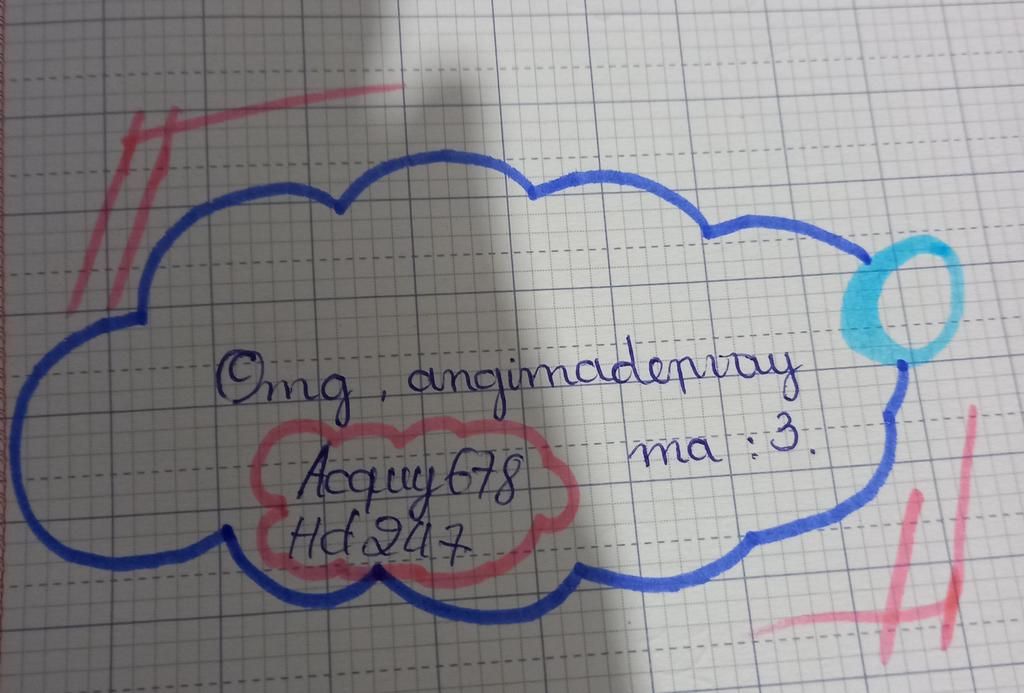 Omg, angimadepvay
ma :3.
Acquy678
Hd247